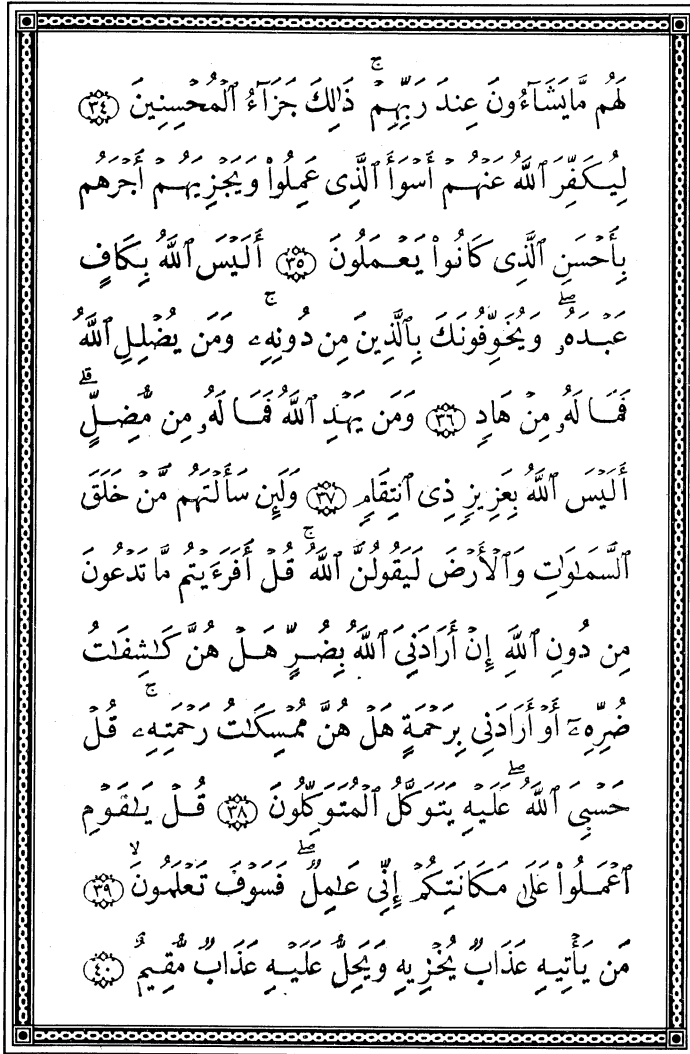 لَهُم مَّا يَشَآءُونَ عِندَ رَبِّهِمْ ۚ ذَٰلِكَ جَزَآءُ ٱلْمُحْسِنِينَ ٣٤
لِيُكَفِّرَ ٱللَّهُ عَنْهُمْ أَسْوَأَ ٱلَّذِى عَمِلُوا۟ وَيَجْزِيَهُمْ أَجْرَهُم
بِأَحْسَنِ ٱلَّذِى كَانُوا۟ يَعْمَلُونَ ٣٥ أَلَيْسَ ٱللَّهُ بِكَافٍ
عَبْدَهُۥ ۖ وَيُخَوِّفُونَكَ بِٱلَّذِينَ مِن دُونِهِۦ ۚ وَمَن يُضْلِلِ ٱللَّهُ
فَمَا لَهُۥ مِنْ هَادٍ ٣٦ وَمَن يَهْدِ ٱللَّهُ فَمَا لَهُۥ مِن مُّضِلٍّ ۗ
أَلَيْسَ ٱللَّهُ بِعَزِيزٍ ذِى ٱنتِقَامٍ ٣٧ وَلَئِن سَأَلْتَهُم مَّنْ خَلَقَ
ٱلسَّمَٰوَٰتِ وَٱلْأَرْضَ لَيَقُولُنَّ ٱللَّهُ ۚ قُلْ أَفَرَءَيْتُم مَّا تَدْعُونَ
مِن دُونِ ٱللَّهِ إِنْ أَرَادَنِىَ ٱللَّهُ بِضُرٍّ هَلْ هُنَّ كَٰشِفَٰتُ
ضُرِّهِۦٓ أَوْ أَرَادَنِى بِرَحْمَةٍ هَلْ هُنَّ مُمْسِكَٰتُ رَحْمَتِهِۦ ۚ قُلْ
حَسْبِىَ ٱللَّهُ ۖ عَلَيْهِ يَتَوَكَّلُ ٱلْمُتَوَكِّلُونَ ٣٨ قُلْ يَٰقَوْمِ
ٱعْمَلُوا۟ عَلَىٰ مَكَانَتِكُمْ إِنِّى عَٰمِلٌ ۖ فَسَوْفَ تَعْلَمُونَ ۙ ٣٩
مَن يَأْتِيهِ عَذَابٌ يُخْزِيهِ وَيَحِلُّ عَلَيْهِ عَذَابٌ مُّقِيمٌ ٤٠